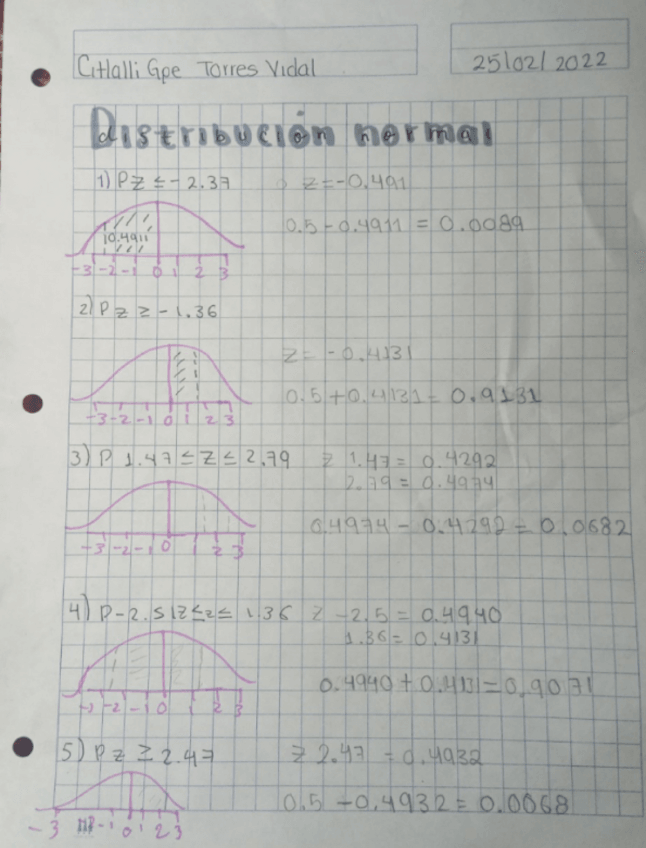 Citlalli Gpe Torres Vidal
25/02/2022
Distribución normal
1) P z ≤ - 2.37 z = -0.491
0.5 - 0.4911 = 0.0089
0.4911
-3 -2 -1 0 1 2 3
2) P z ≥ - 1.36
z = -0.4131
0.5 + 0.4131 = 0.9131
-3 -2 -1 0 1 2 3
3) P 1.47 ≤ z ≤ 2.79 z 1.47 = 0.4292
2.79 = 0.4974
0.4974 - 0.4292 = 0.0682
-3 -2 -1 0 1 2 3
4) P -2.51 ≤ z ≤ 1.36 z -2.5 = 0.4940
1.36 = 0.4131
0.4940 + 0.4131 = 0.9071
-3 -2 -1 0 1 2 3
5) P z ≥ 2.47 z 2.47 = 0.4932
0.5 - 0.4932 = 0.0068
-3 -1 0 1 2 3